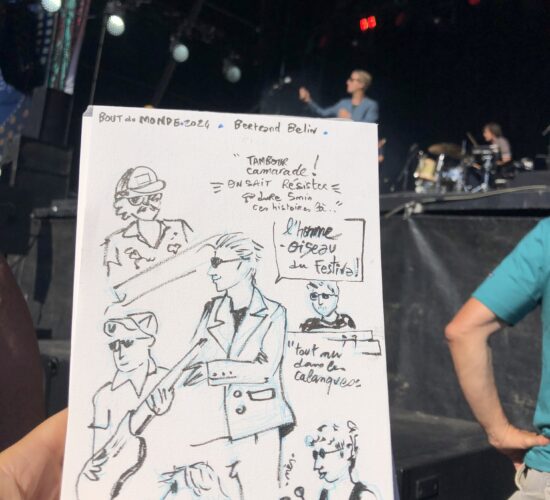 BOUT du MONDE.2024 . Bertrand Belin .
"TAMBOUR
camarade!
ON SAIT RÉSISTER
ça dure 5min
ces histoires là..."
l'homme
oiseau
du Festival
"tout nu
dans les
calanques"